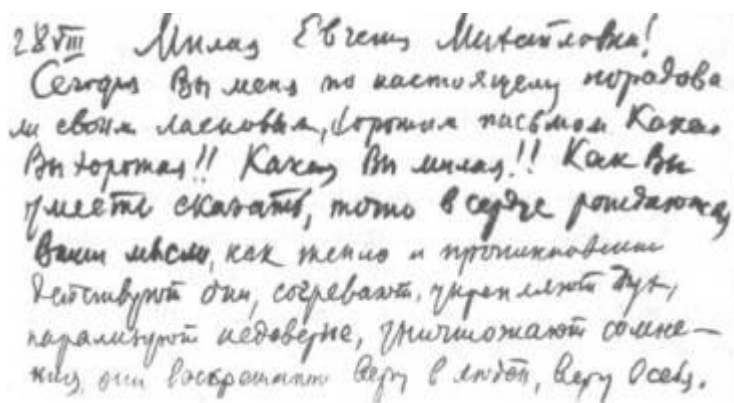 28 VIII Милая Евгения Михайловна!
Сегодня Вы меня по настоящему порадова
ли своим ласковым, хорошим письмом Какая
Вы хорошая!! Какая Вы милая!! Как Вы
умеете сказать, точно в сердце рождаются
Ваши мысли, как тепло и проникновенно
действуют они, согревают, укрепляют дух,
парализуют недоверие, уничтожают сомне-
ния, они воскрешают веру в людей, веру в себя.